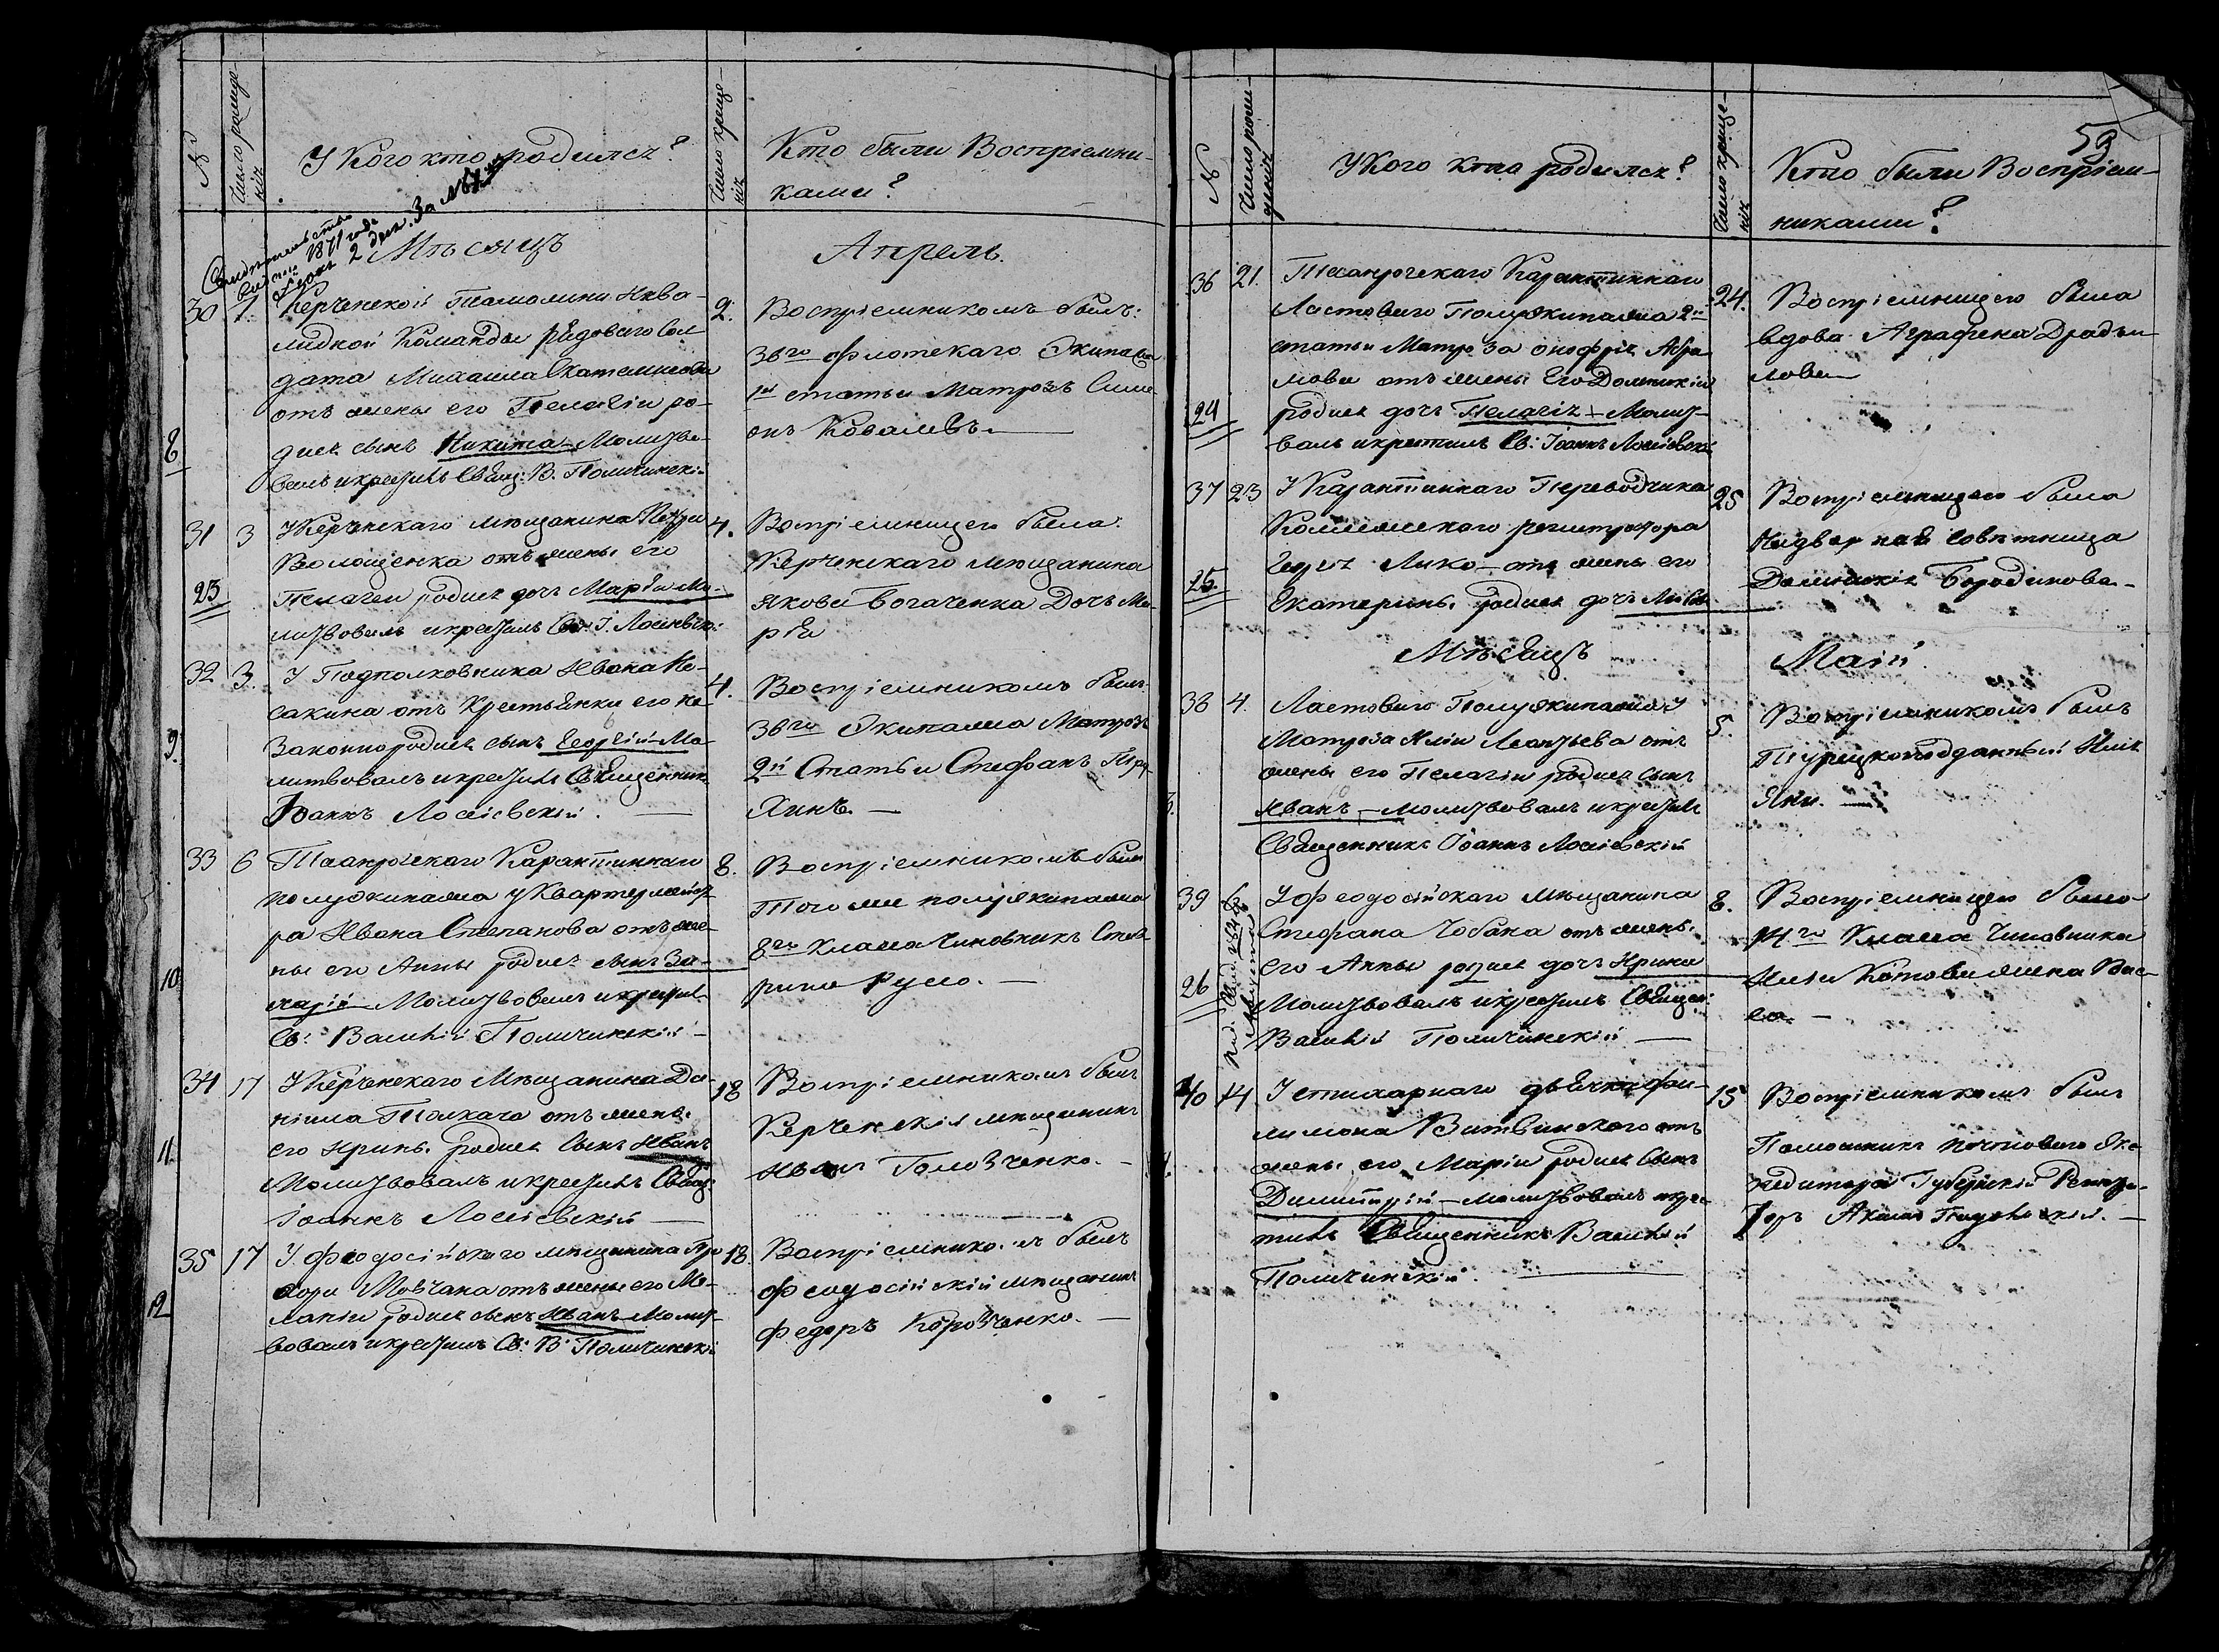 №
Число рожде-
нія
У Кого кто родился?
Число креще-
нія
Кто были Воспріемни-
ками?
1871 года
2 дек. За №
Мѣсяцъ
Апрель.
30 1. Керченской Инва-
лидной Команды рядоваго Сол
дата Михаила
отъ жены его Пелагіи ро-
дился сынъ Никита – Молитво-
валъ и крестилъ Свящ: В. Поличинскі:
8
2. Воспріемникомъ былъ:
36го флотскаго Экипажа
1й статьи Матрозъ Симе-
онъ Ковалевъ.
31 3 У Керченскаго мѣщанина Петра
Волощенка отъ жены его
Пелагеи родися дочь Марѳа Мо-
литвовалъ и крестилъ Св: І. Лосіевскі:
23
4. Воспріемницею была
Керченскаго мѣщанина
Якова Богаченка Дочь Ма-
рѳа
32 3. У Подполковника Ивана Ко-
сакина отъ Крестьянки его не
законно родися сынъ Георгій – Мо-
литвовалъ и крестилъ Священник
Іоаннъ Лосіевскій.
9.
4. Воспріемникомъ былъ
36го Экипажа Матрозъ
2й Статьи Стефанъ
33 6 Таганрогскаго Карантиннаго
полуэкипажа у Квартермейст
ра Ивана Степанова отъ же-
ны его Анны родися сынъ За-
харій – Молитвовалъ и крестил
Св: Василій Поличинскій –
10
8. Воспріемникомъ былъ
Того же полуэкипажа
8го класса Чиновникъ
Руссо. –
34 17 У Керченскаго Мѣщанина Да-
ніила Толкача отъ жены
его Ирины родися Сынъ Иванъ
Молитвовалъ и крестилъ Свящ:
Іоаннъ Лосіевскій –
11.
18 Воспріемникомъ былъ
Керченскій мѣщанинъ
Иванъ Головченко. –
35 17 У Феодосійскаго мѣщанина Про
хора Мовчана отъ жены его Ме-
ланіи родися сынъ Иванъ – Молит-
вовалъ и крестилъ Св: В: Поличинскі:
12
18. Воспріемникомъ былъ
Феодосійскій мѣщанинъ
Федоръ Коровченко. –
№
Число рож-
денія
У Кого кто родился?
Число креще-
нія
59
Кто были Воспріем-
никами?
36 21. Таганрогскаго Карантиннаго
Ластоваго Полуэкипажа 2й
статьи Матроза Онофрія Абра
мова отъ жены Его Домникіи
родися дочь Пелагія – Молит-
валъ и крестилъ Св: Іоаннъ Лосіевскі
24
24. Воспріемницею была
вдова Аграфена
37 23 У Карантиннаго Переводчика
Коллежскаго регистратора
Лико – отъ жены его
Екатерины родися дочь
25
25 Воспріемницею была
Надворная Совѣтница
Домникія Бородинова –
Мѣсяцъ
Маій.
38 4. Ластоваго Полуэкипажа У
Матроза Иліи Леонтьева отъ
жены его Пелагіи родися сынъ
Иванъ – молитвовалъ и крестил
Священникъ Іоаннъ Лосіевскій
3.
5. Воспріемникомъ былъ
Турецкоподданный
Яни.
39 6 У Феодосійскаго мѣщанина
Стефана Чобана отъ жены
его Анны родися дочь Ирина
Молитвовалъ и крестилъ Священ:
Василій Поличинскій –
26
8. Воспріемницею была
14го Класса Чиновника
Иліи Котова жена Вас-
са. –
40 14. У стихарнаго дьячка Фи-
лимона Витвинскаго отъ
жены его Маріи родися Сынъ
Димитрій – молитвовалъ и кре-
тилъ Священникъ Василій
Поличинскій.
4.
15 Воспріемникомъ былъ
Помошникъ почтоваго Экс
педитора Губернскій Регистра-
торъ